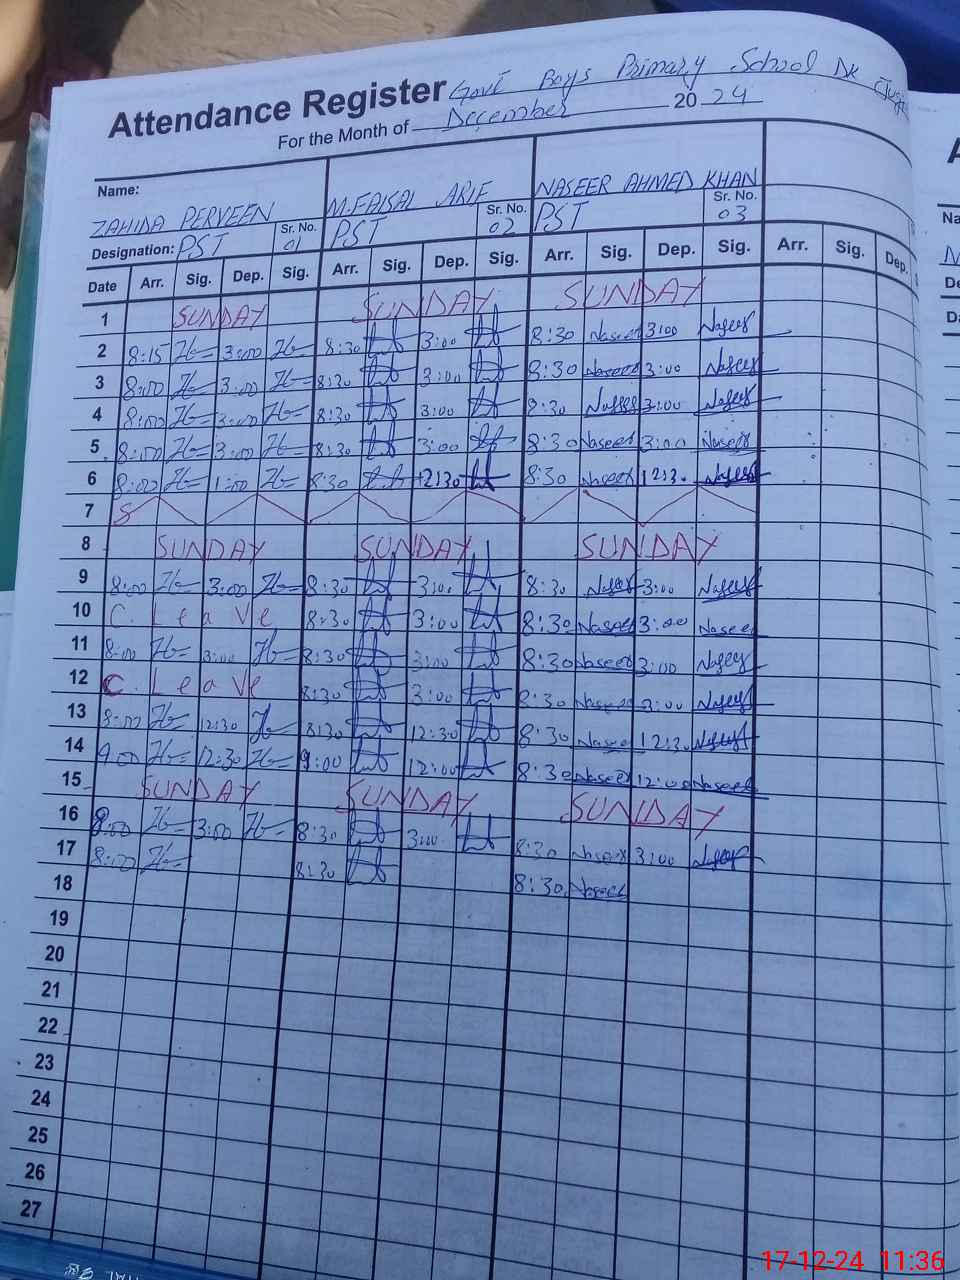 Attendance Register Govt Boys Primary School DK
For the Month of December 2024
Name: ZAHIDA PERVEEN M.FAISAL ARIF NASEER AHMED KHAN
Designation: PST Sr. No. 01 PST Sr. No. 02 PST Sr. No. 03
Date Arr. Sig. Dep. Sig. Arr. Sig. Dep. Sig. Arr. Sig. Dep. Sig. Arr. Sig. Dep.
1 SUNDAY SUNDAY SUNDAY
2 8:15 3:00 8:30 3:00 8:30 Naseer 3:00 Naseer
3 8:00 3:00 8:30 3:00 8:30 Naseer 3:00 Naseer
4 8:00 3:00 8:30 3:00 8:30 Naseer 3:00 Naseer
5 8:00 3:00 8:30 3:00 8:30 Naseer 3:00 Naseer
6 8:00 1:00 8:30 12:30 8:30 Naseer 12:30 Naseer
7
8 SUNDAY SUNDAY SUNDAY
9 8:00 3:00 8:30 3:00 8:30 Naseer 3:00 Naseer
10 C. Leave 8:30 3:00 8:30 Naseer 3:00 Naseer
11 8:00 3:00 8:30 3:00 8:30 Naseer 3:00 Naseer
12 C. Leave 8:30 3:00 8:30 Naseer 3:00 Naseer
13 8:00 12:30 8:30 12:30 8:30 Naseer 12:30 Naseer
14 9:00 12:30 9:00 12:00 8:30 Naseer 12:00 Naseer
15 SUNDAY SUNDAY SUNDAY
16 8:00 3:00 8:30 3:00 8:30 Naseer 3:00 Naseer
17 8:00 8:30 8:30 Naseer
18
19
20
21
22
23
24
25
26
27
17-12-24 11:36